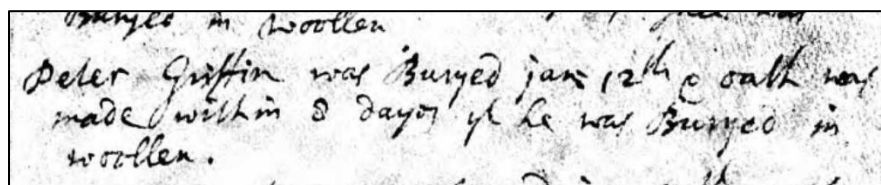 Buryed in woollen
was
Peter Griffin was Buryed jan 12th & oath was
made within 8 dayes yt he was Buryed in
woollen.